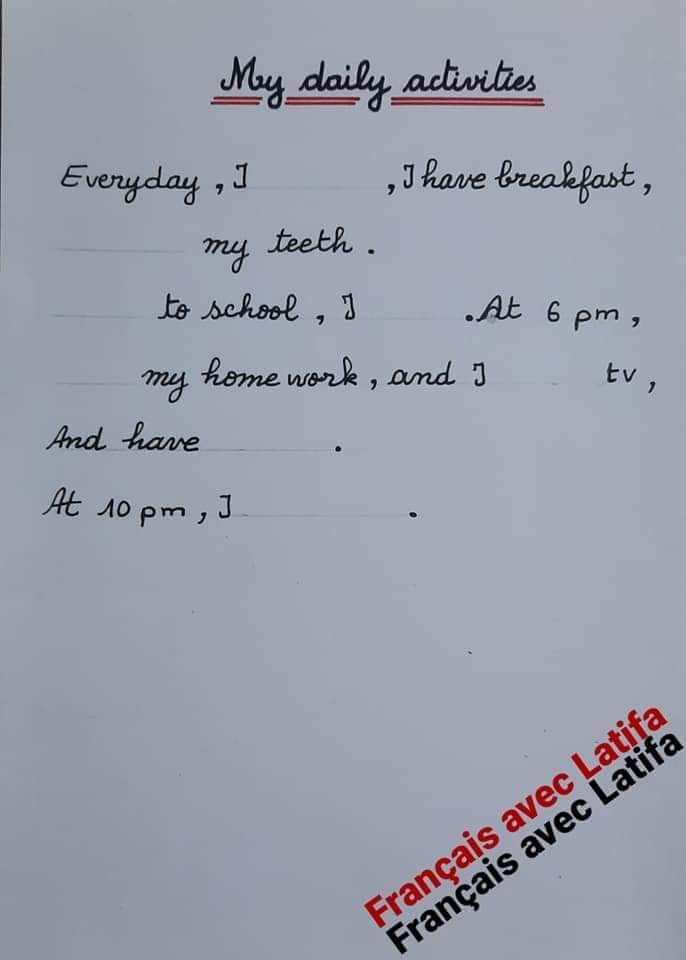 My daily activities
Everyday , I , I have breakfast ,
my teeth .
to school , I . At 6 pm ,
my home work , and I tv ,
And have .
At 10 pm , I .
Français avec Latifa
Français avec Latifa